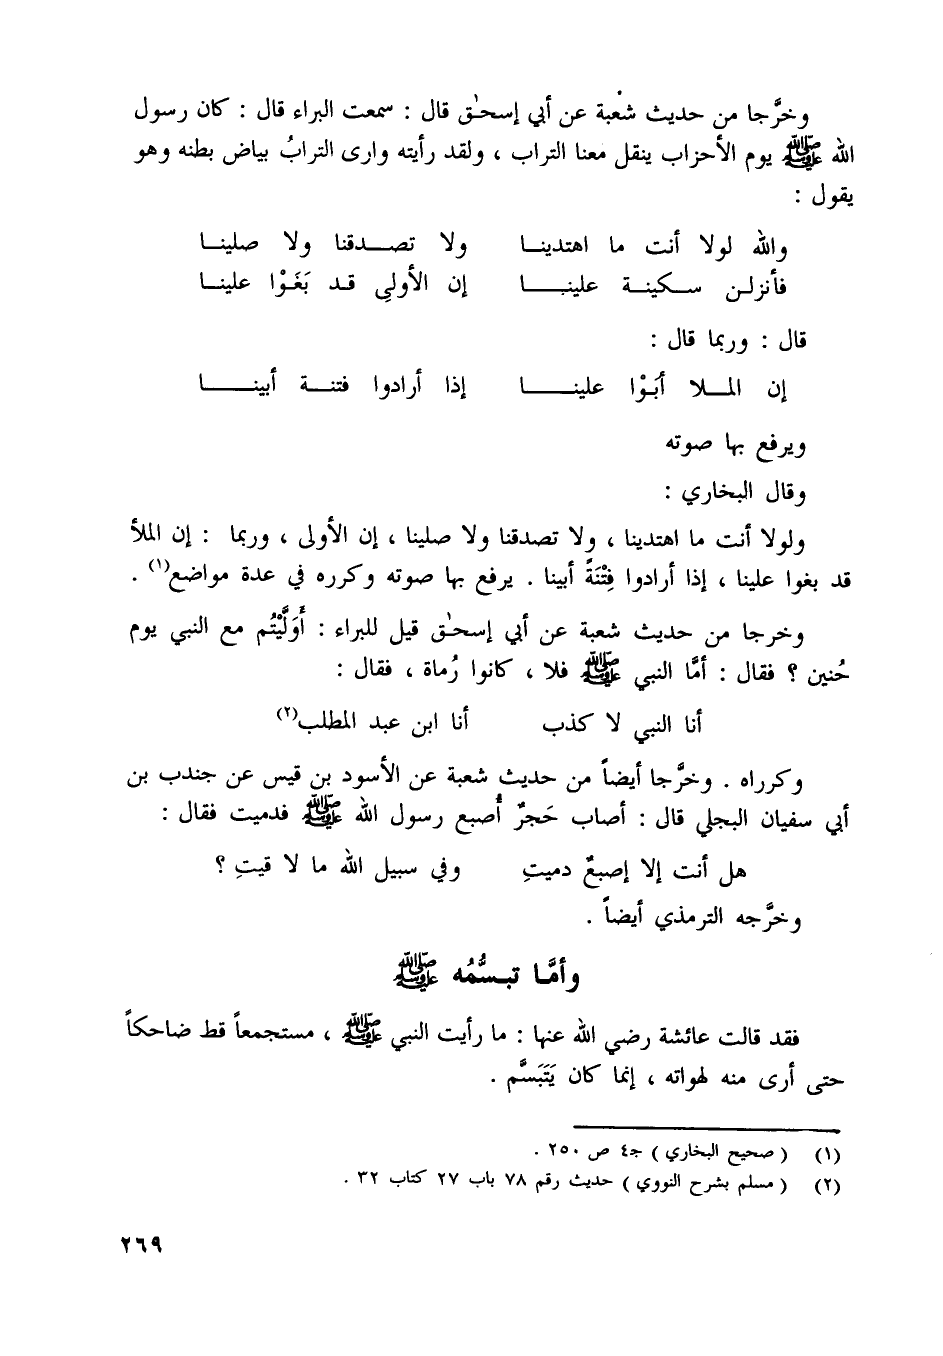 وخرَّجا من حديث شعْبة عن أبي إسحٰق قال : سمعت البراء قال : كان رسول
الله ﷺ يوم الأحزاب ينقل معنا التراب ، ولقد رأيته وارى الترابُ بياض بطنه وهو
يقول :
والله لولا أنت ما اهتدينـا ولا تصـــدقنا ولا صلينـا
فأنزلـن ســكينـة علينـــا إن الأولى قـد بَغَـوْا علينـا
قال : وربما قال :
إن المــلا أبَـوْا علينـــا إذا أرادوا فتنــة أبينـــا
ويرفع بها صوته
وقال البخاري :
ولولا أنت ما اهتدينا ، ولا تصدقنا ولا صلينا ، إن الأولى ، وربما : إن الملأ
قد بغوا علينا ، إذا أرادوا فِتْنَةً أبينا . يرفع بها صوته وكرره في عدة مواضع(١) .
وخرجا من حديث شعبة عن أبي إسحٰق قيل للبراء : أَوَلَّيْتُم مع النبي يوم
حُنين ؟ فقال : أمَّا النبي ﷺ فلا ، كانوا رُماة ، فقال :
أنا النبي لا كذب أنا ابن عبد المطلب(٢)
وكرراه . وخرَّجا أيضاً من حديث شعبة عن الأسود بن قيس عن جندب بن
أبي سفيان البجلي قال : أصاب حَجرٌ أُصبع رسول الله ﷺ فدميت فقال :
هل أنت إلا إصبعٌ دميتِ وفي سبيل الله ما لا قيتِ ؟
وخرَّجه الترمذي أيضاً .
وأمَّا تبسُّمُه ﷺ
فقد قالت عائشة رضي الله عنها : ما رأيت النبي ﷺ ، مستجمعاً قط ضاحكاً
حتى أرى منه لهواته ، إنما كان يَتَبَسَّم .
(١) ( صحيح البخاري ) جـ٤ ص ٢٥٠ .
(٢) ( مسلم بشرح النووي ) حديث رقم ٧٨ باب ٢٧ كتاب ٣٢ .
٢٦٩